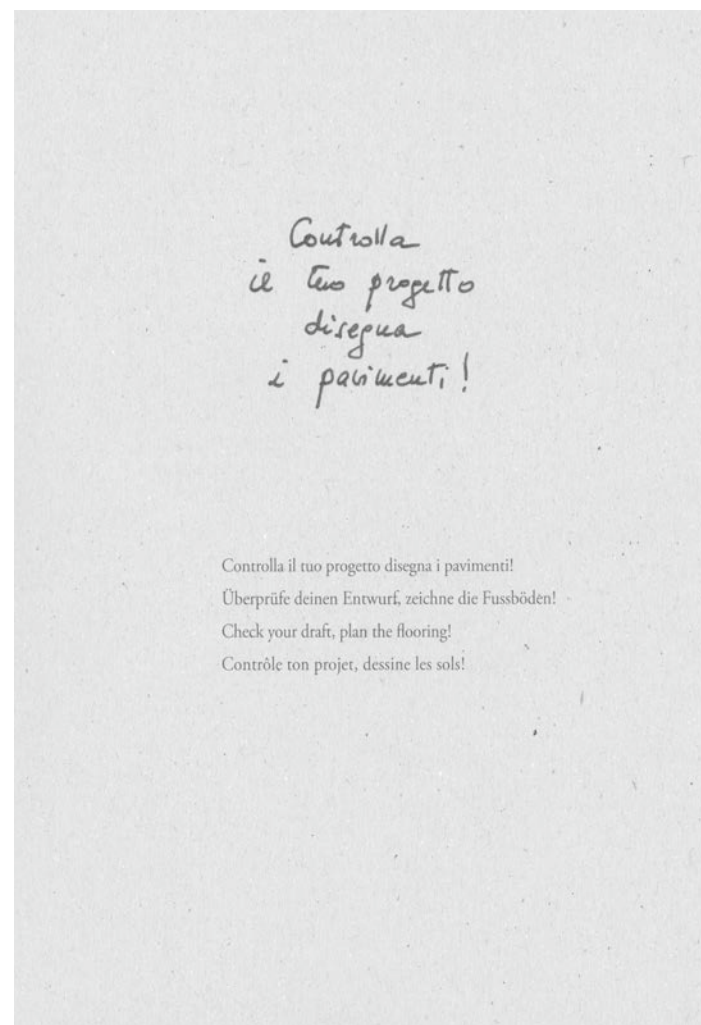 Controlla
il tuo progetto
disegna
i pavimenti!
Controlla il tuo progetto disegna i pavimenti!
Überprüfe deinen Entwurf, zeichne die Fussböden!
Check your draft, plan the flooring!
Contrôle ton projet, dessine les sols!